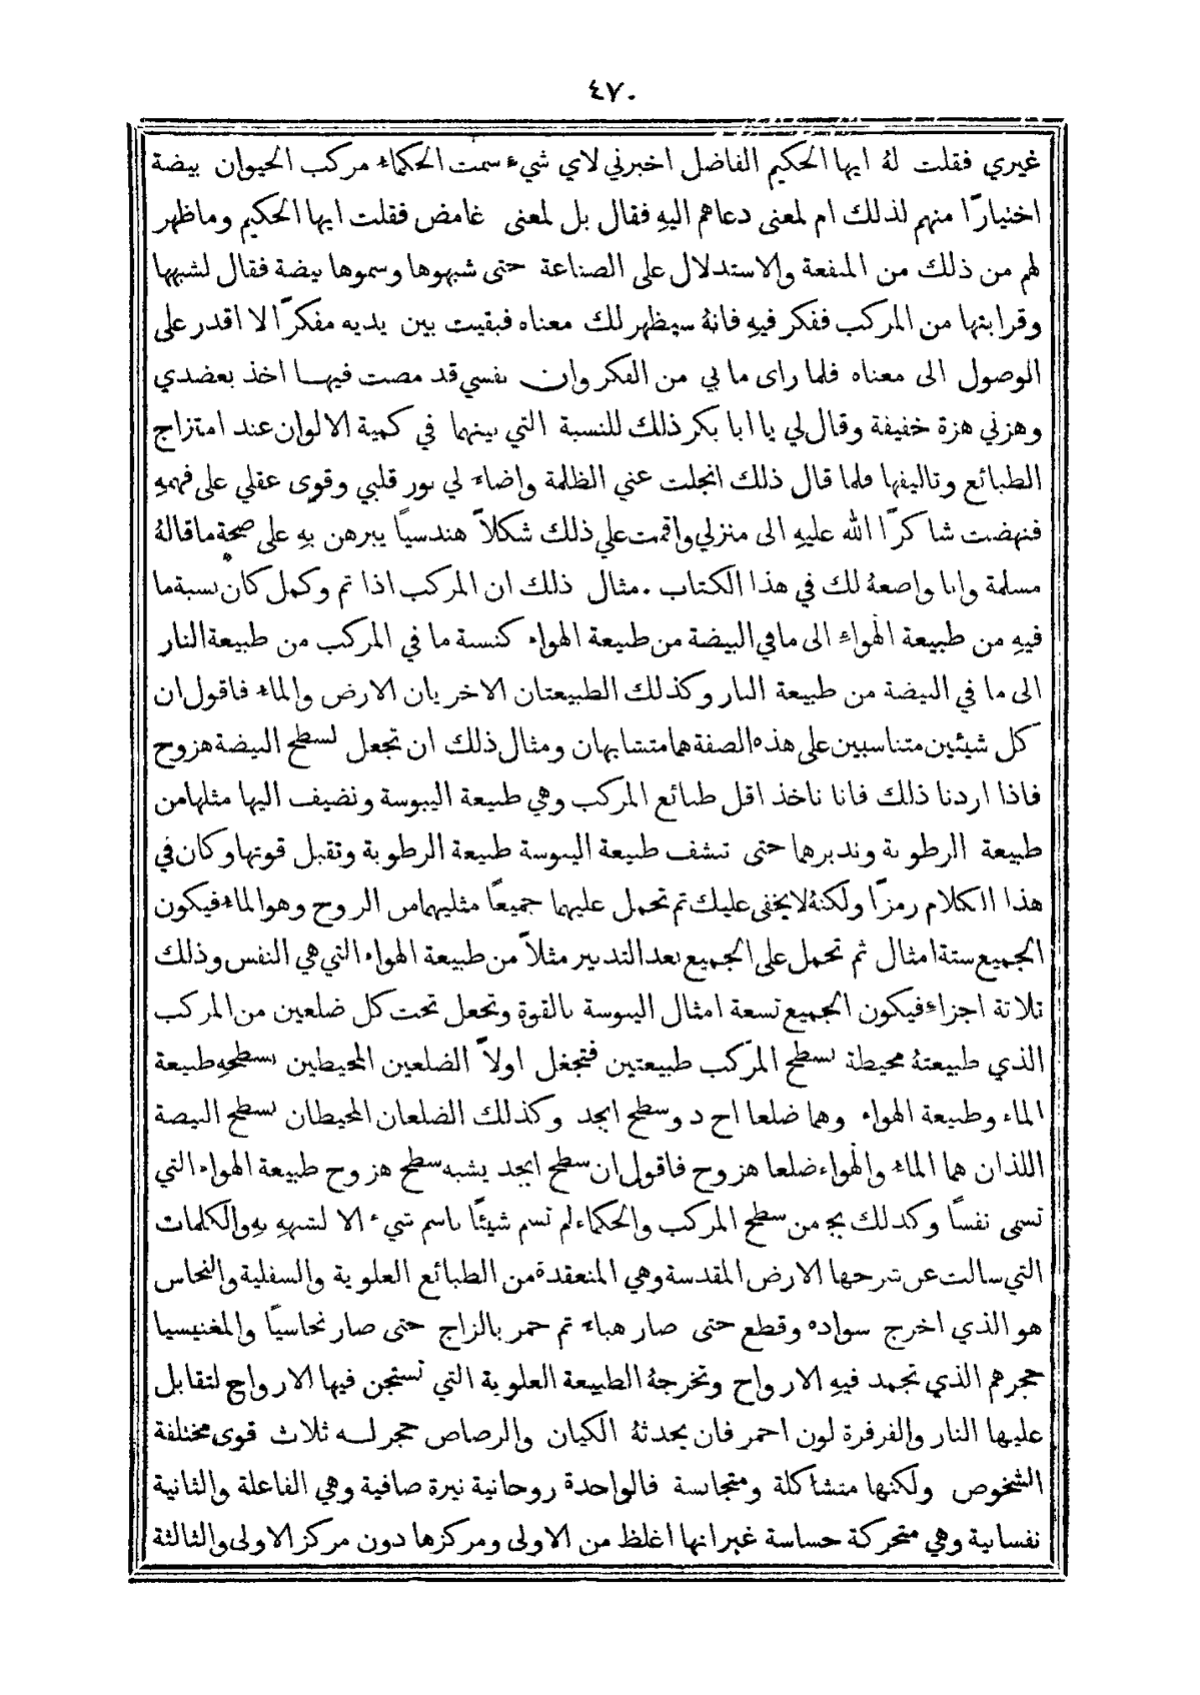 ٤٧٠
غيري فقلت لهُ ايها الحكيم الفاضل اخبرني لاي شيء سمت الحكماء مركب الحيوان بيضة
اختيارًا منهم لذلك ام لمعنى دعاهم اليهِ فقال بل لمعنى غامض فقلت ايها الحكيم وما ظهر
لهم من ذلك من المنفعة والاستدلال على الصناعة حتى شبهوها وسموها بيضة فقال لشبهها
وقرابتها من المركب ففكر فيهِ فانهُ سيظهر لك معناه فبقيت بين يديه مفكرًا لا اقدر على
الوصول الى معناه فلما راى ما بي من الفكر وان نفسي قد مضت فيها اخذ بعضدي
وهزني هزة خفيفة وقال لي يا ابا بكر ذلك للنسبة التي بينهما في كمية الالوان عند امتزاج
الطبائع وتاليفها فلما قال ذلك انجلت عني الظلمة واضاء لي نور قلبي وقوى عقلي على فهمهِ
فنهضت شاكرًا الله عليهِ الى منزلي واقمت على ذلك شكلاً هندسيًا يبرهن بهِ على صحة ما قالهُ
مسلمة وانا واضعهُ لك في هذا الكتاب . مثال ذلك ان المركب اذا تم وكمل كان نسبة ما
فيهِ من طبيعة الهواءِ الى ما في البيضة من طبيعة الهواء كنسبة ما في المركب من طبيعة النار
الى ما في البيضة من طبيعة النار وكذلك الطبيعتان الاخريان الارض والماء فاقول ان
كل شيئين متناسبين على هذه الصفة هما متشابهان ومثال ذلك ان تجعل لسطح البيضة هزوح
فاذا اردنا ذلك فانا ناخذ اقل طبائع المركب وهي طبيعة اليبوسة ونضيف اليها مثلها من
طبيعة الرطوبة وندبرهما حتى تنشف طبيعة اليبوسة طبيعة الرطوبة وتقبل قوتها وكان في
هذا الكلام رمزًا ولكنهُ لا يخفى عليك ثم تحمل عليهما جميعًا مثليهما من الروح وهو الماء فيكون
الجميع ستة امثال ثم تحمل على الجميع بعد التدبير مثلاً من طبيعة الهواء التي هي النفس وذلك
ثلاثة اجزاء فيكون الجميع تسعة امثال اليبوسة بالقوة وتجعل تحت كل ضلعين من المركب
الذي طبيعتهُ محيطة بسطح المركب طبيعتين فتجغل اولاً الضلعين المحيطين بسطحهِ طبيعة
الماء وطبيعة الهواء وهما ضلعا اح د وسطح ابجد وكذلك الضلعان المحيطان بسطح البيضة
اللذان هما الماء والهواء ضلعا هزوح فاقول ان سطح ابجد يشبه سطح هزوح طبيعة الهواء التي
تسمى نفسًا وكذلك بج من سطح المركب والحكماء لم تسم شيئًا باسم شيء الا لشبههِ بهِ والكلمات
التي سالت عن شرحها الارض المقدسة وهي المنعقدة من الطبائع العلوية والسفلية والنحاس
هو الذي اخرج سواده وقطع حتى صار هباء ثم حمر بالزاج حتى صار نحاسيًا والمغنيسيا
حجرهم الذي تجمد فيهِ الارواح وتخرجهُ الطبيعة العلوية التي تستجن فيها الارواح لتقابل
عليها النار والفرفرة لون احمر فان يحدثهُ الكيان والرصاص حجر له ثلاث قوى مختلفة
الشخوص ولكنها متشاكلة ومتجانسة فالواحدة روحانية نيرة صافية وهي الفاعلة والثانية
نفسانية وهي متحركة حساسة غير انها اغلظ من الاولى ومركزها دون مركز الاولى والثالثة